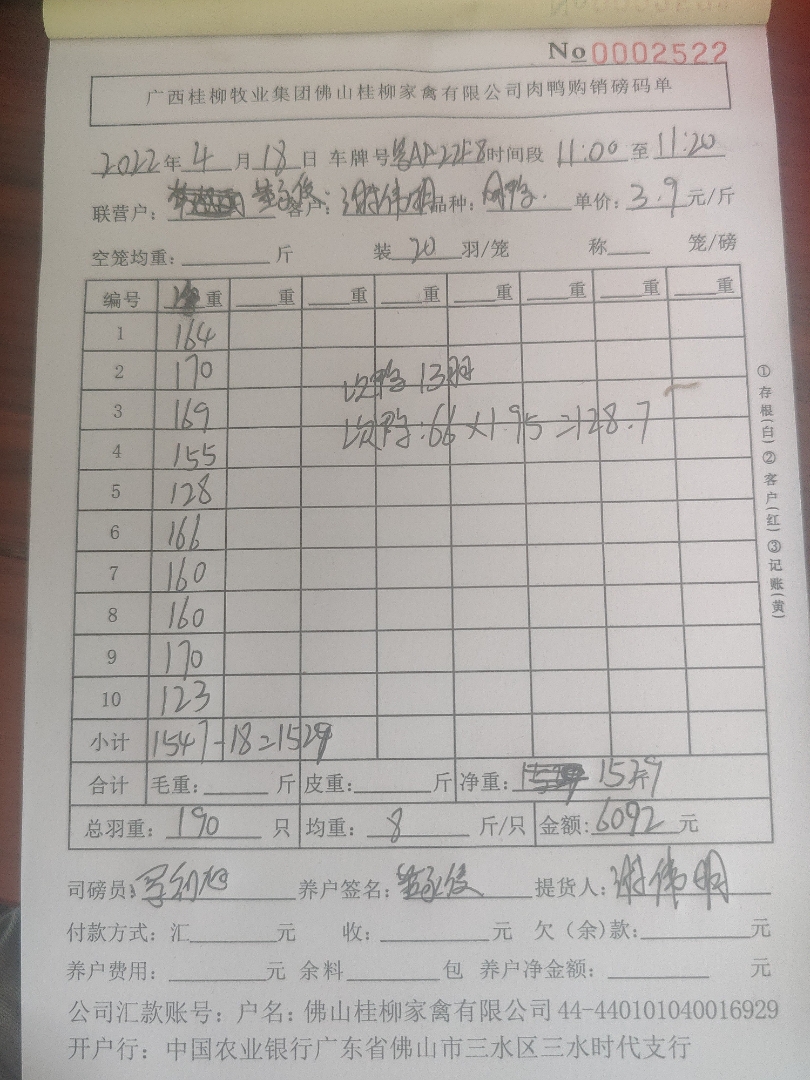 No 0002522
广西桂柳牧业集团佛山桂柳家禽有限公司肉鸭购销磅码单
2022年4月18日 车牌号 时间段 11:00至11:20
联营户： 客户：谢伟明 品种：肉鸭 单价：3.9元/斤
空笼均重： 斤 装20羽/笼 称 笼/磅
编号 重 重 重 重 重 重 重 重
1 164
2 170
次鸭 13羽
3 169
次鸭:66×1.95=128.7
4 155
5 128
6 166
7 160
8 160
9 170
10 123
小计 1547-18=1529
合计 毛重： 斤 皮重： 斤 净重：1529斤
总羽重：190只 均重：8斤/只 金额：6092元
司磅员： 养户签名： 提货人：谢伟明
付款方式：汇 元 收： 元 欠（余）款： 元
养户费用： 元 余料 包 养户净金额： 元
公司汇款账号：户名：佛山桂柳家禽有限公司 44-440101040016929
开户行：中国农业银行广东省佛山市三水区三水时代支行
①存根(白)②客户(红)③记账(黄)